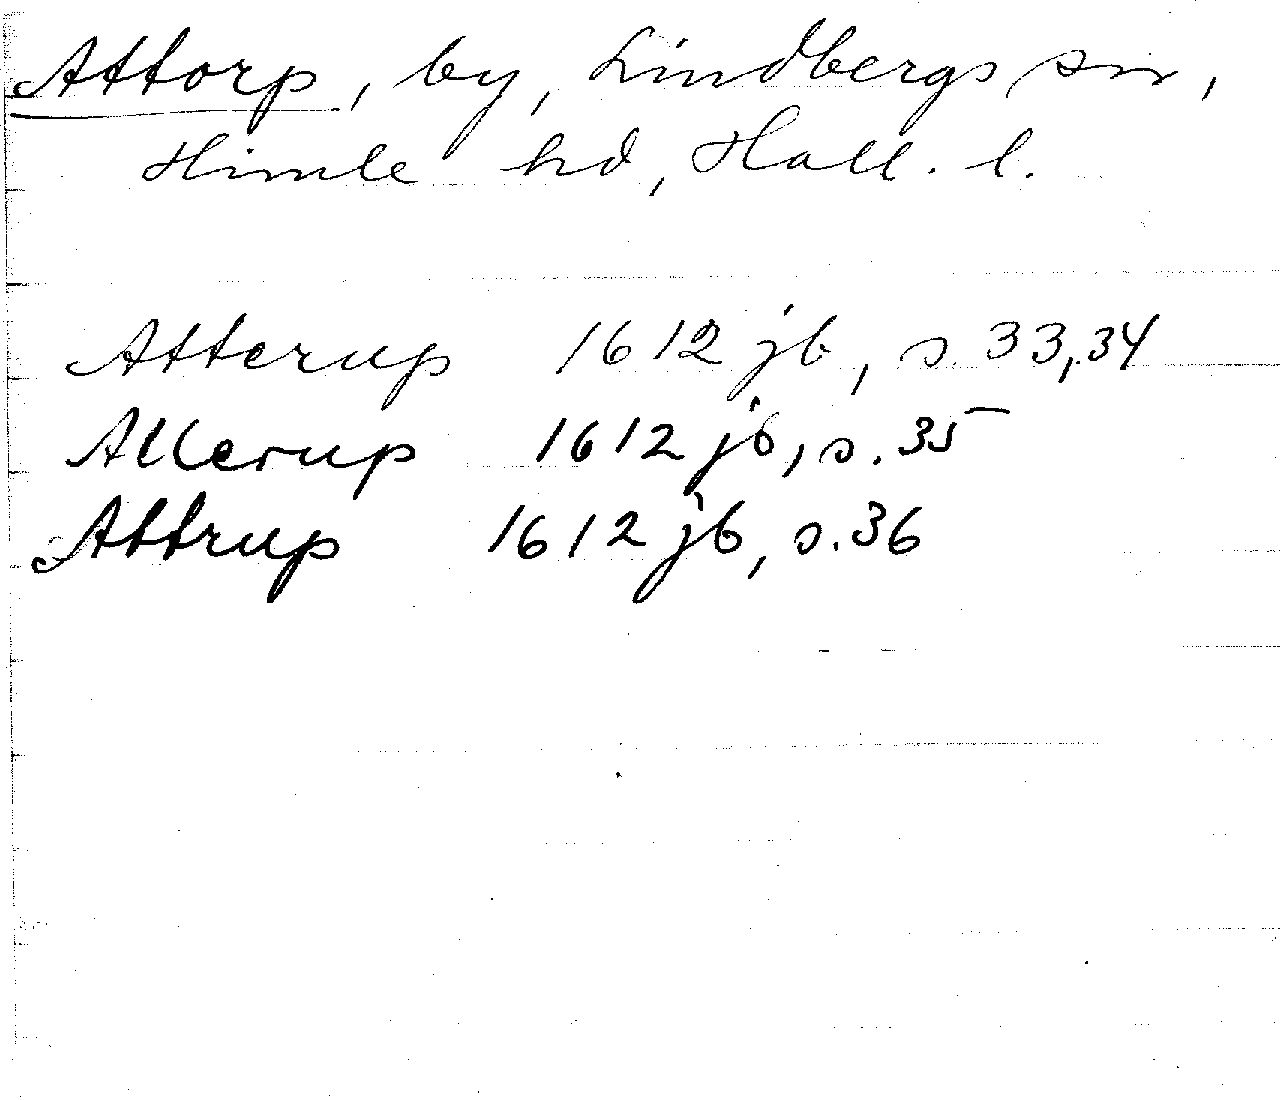 Attorp, by, Lindbergs sn,
Himle hd, Hall. l.
Atterup 1612 jb, s. 33,34
Allerup 1612 jb, s. 35
Attrup 1612 jb, s. 36